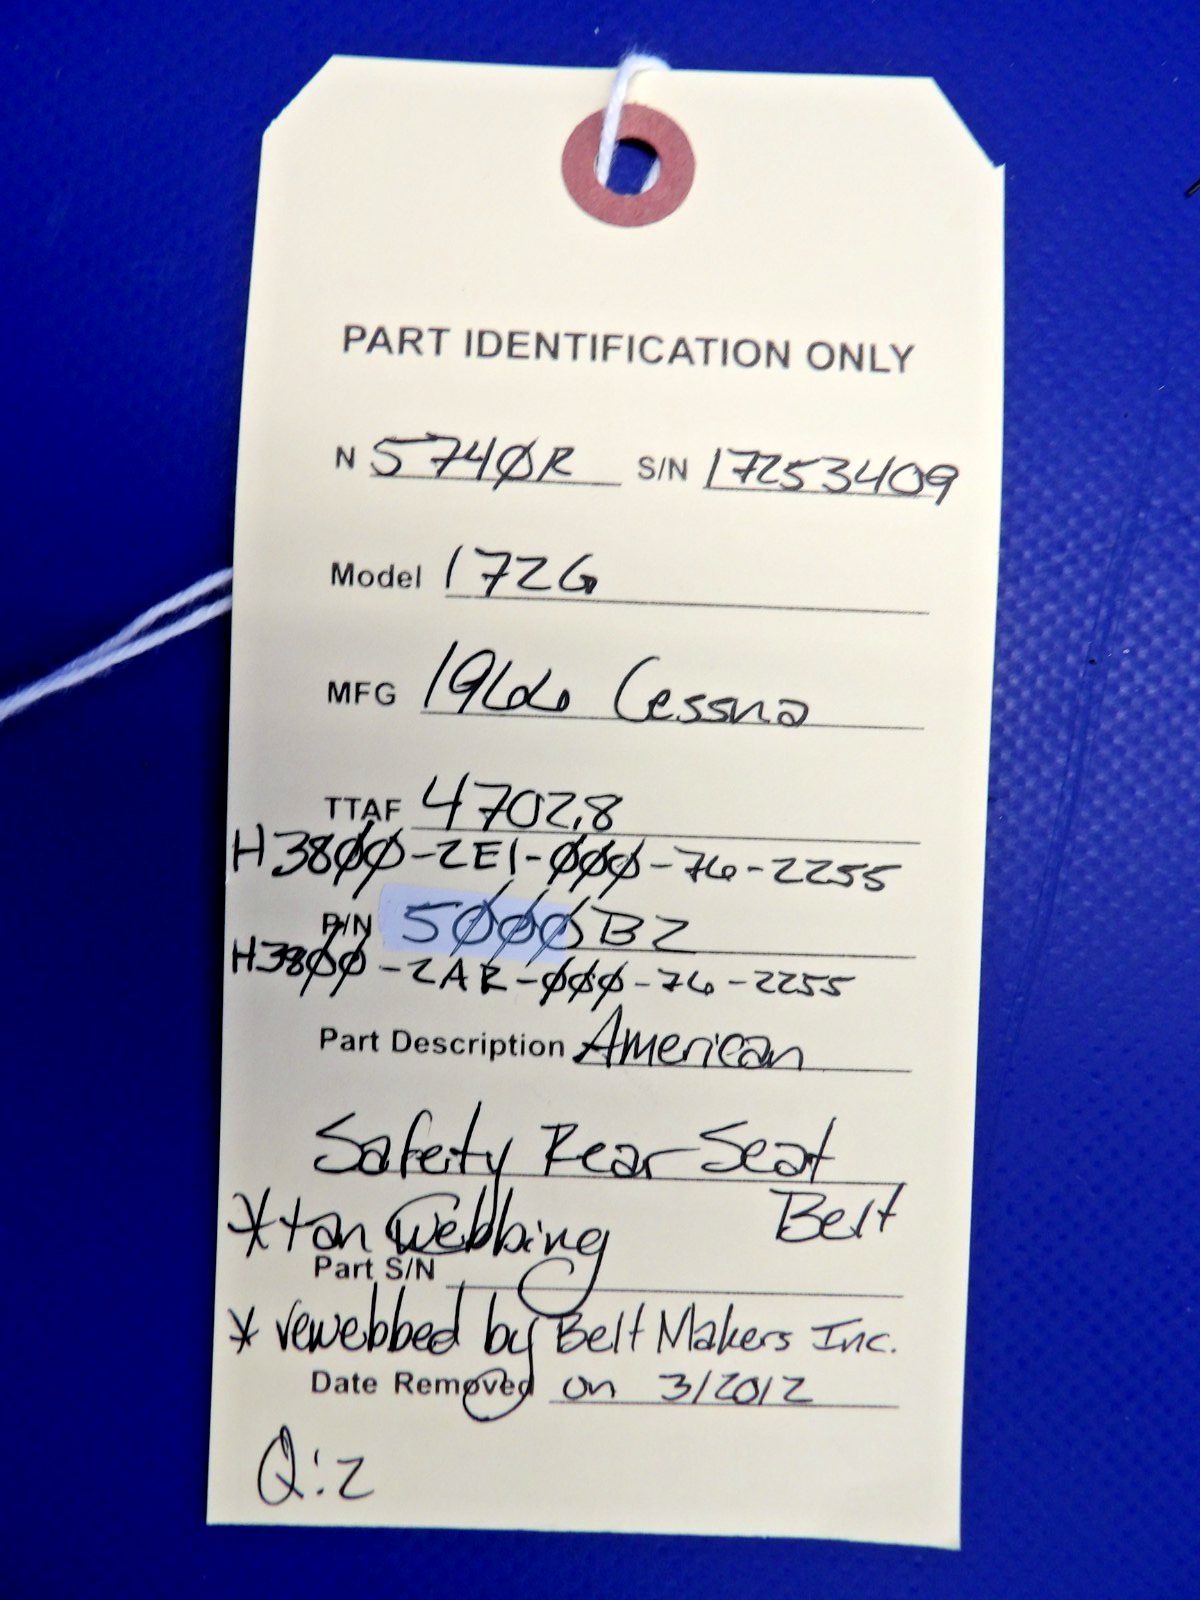 PART IDENTIFICATION ONLY
N 5740R S/N 17253409
Model 172G
MFG 1966 Cessna
TTAF 4702.8
H3800-2E1-000-76-2255
P/N 5000B2
H3800-2AR-000-76-2255
Part Description American
Safety Rear Seat
Belt
*tan webbing
Part S/N
* rewebbed by Belt Makers Inc.
Date Removed on 3/2012
Q:2